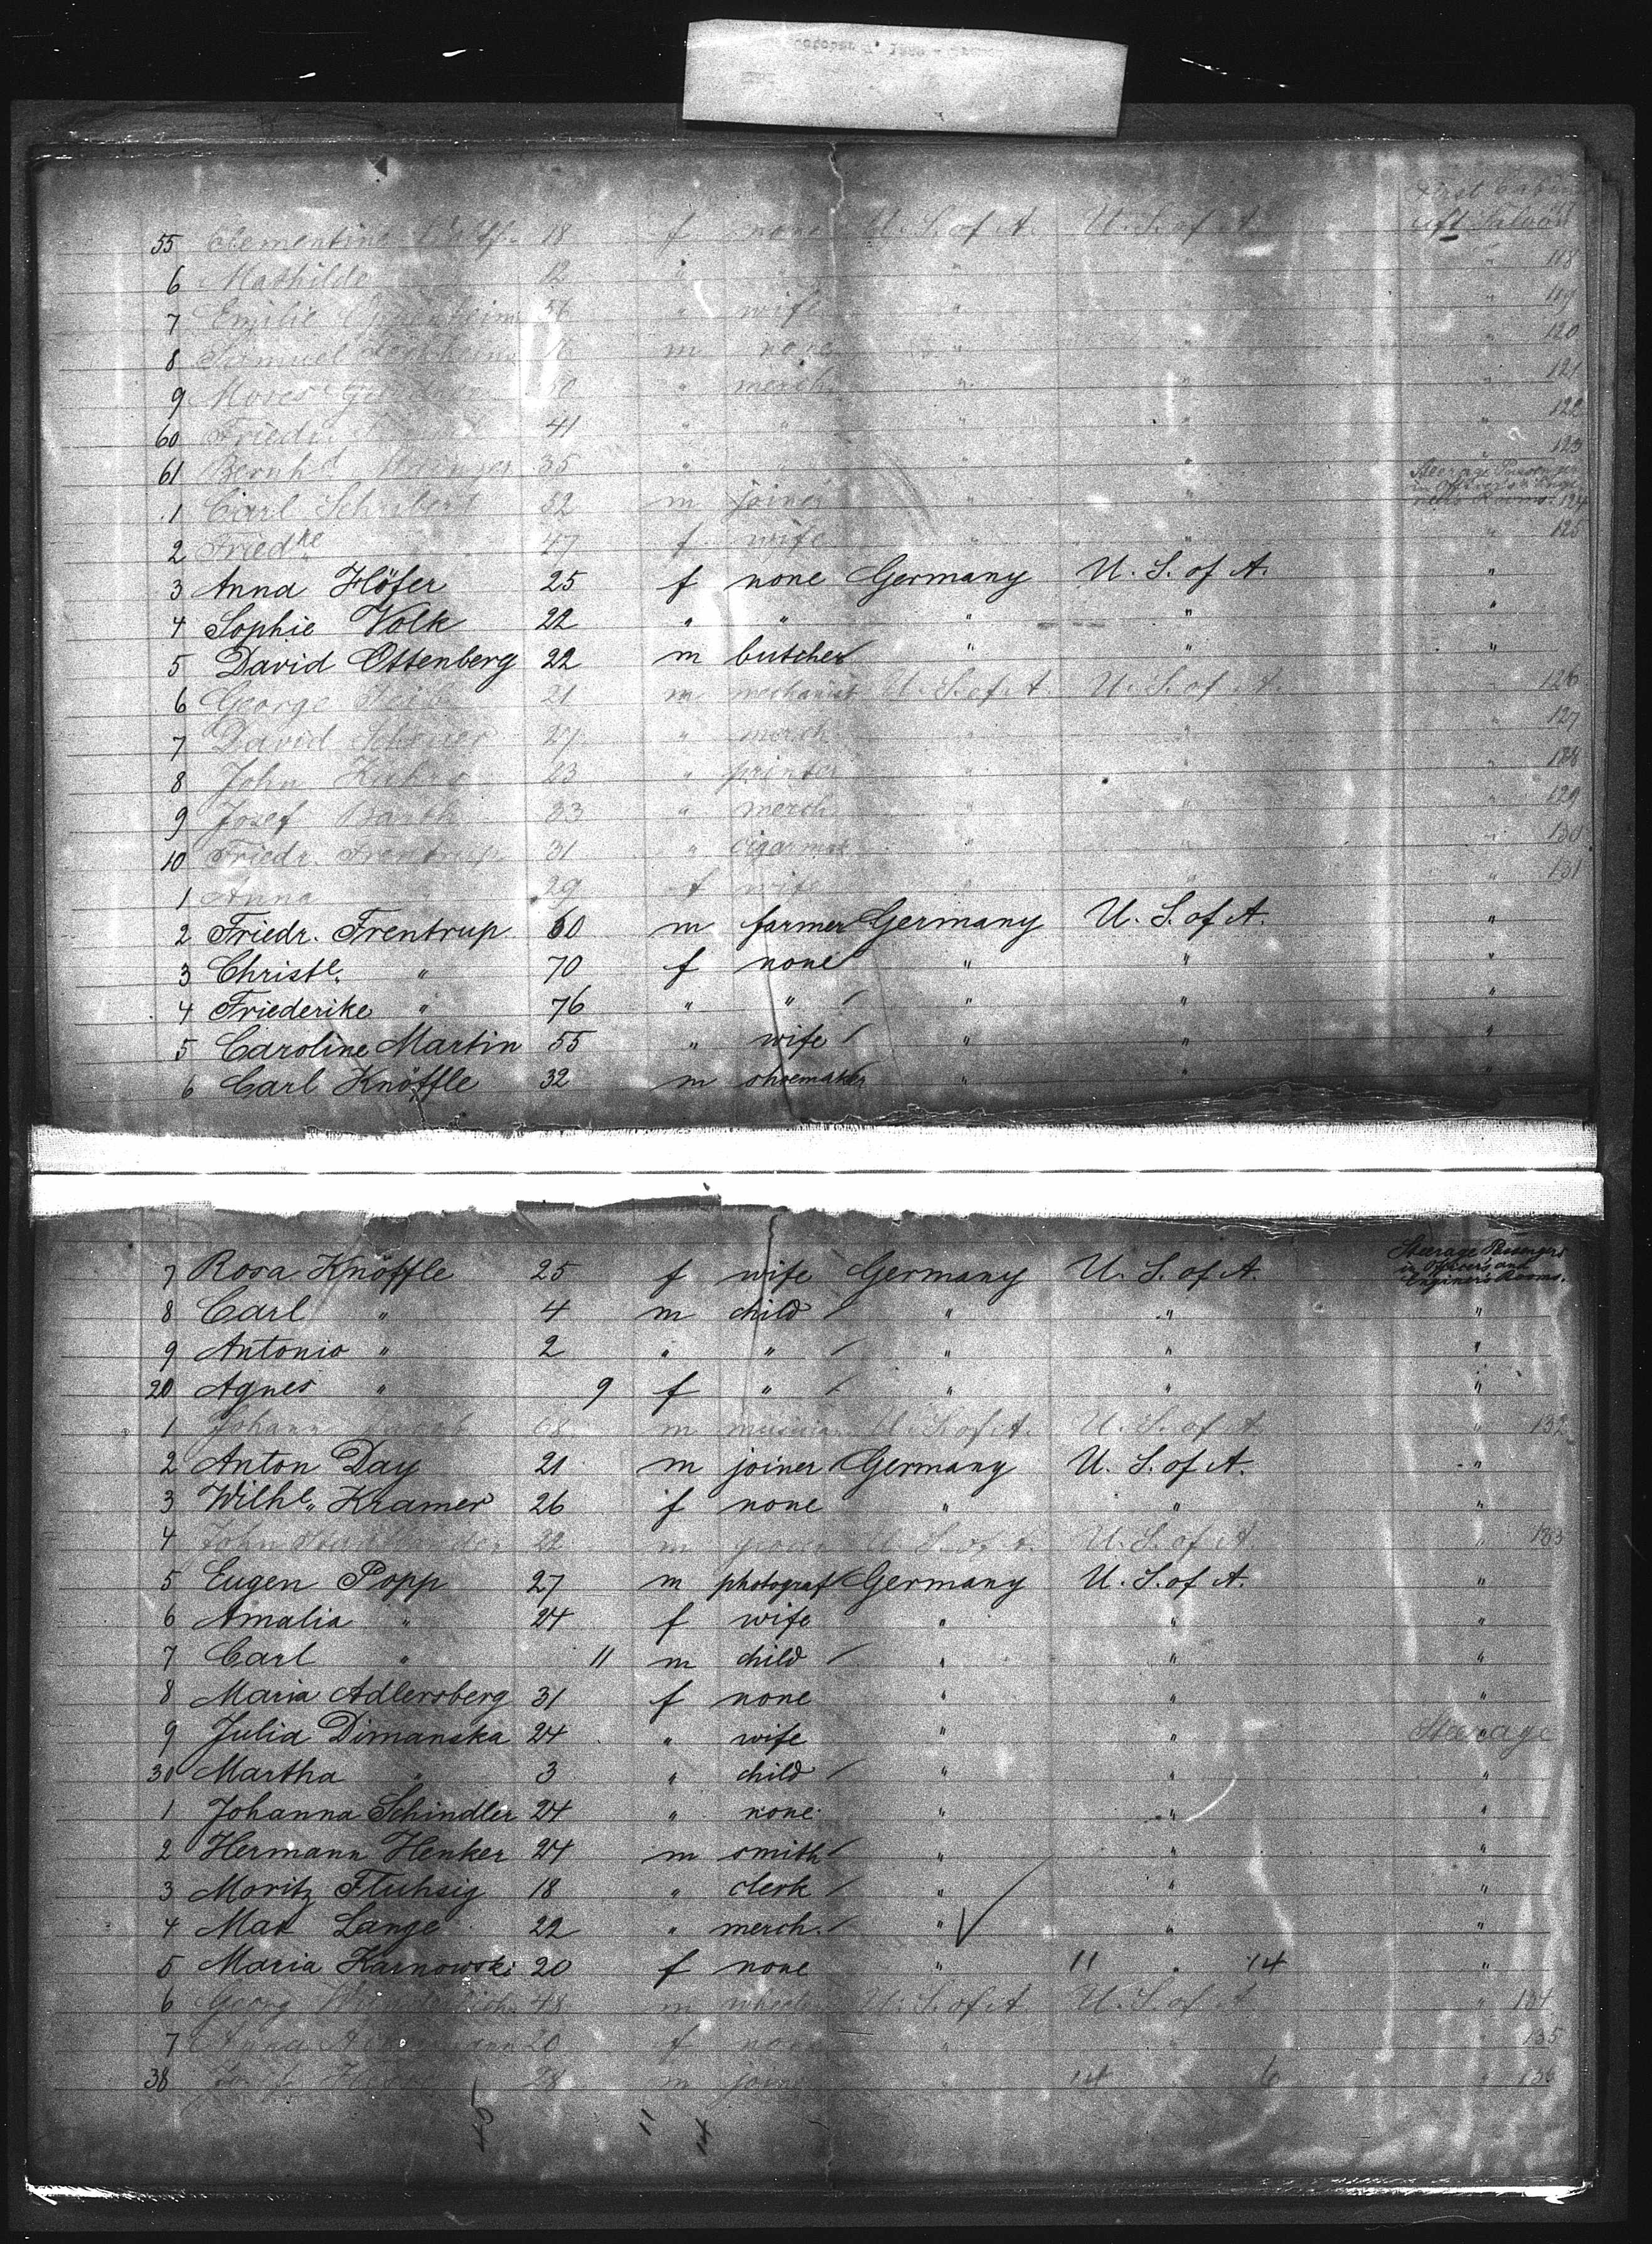 First Cabin
55 Clementine 18 f none U. S. of A. U. S. of A. aft Saloon
6 Mathilde " 12 " " " " " 118
7 Emilie Oppenheim 56 " wife " " " 119
8 Samuel m none " " " 120
9 Moses 50 " merch. " " " 121
60 Friedr. 41 " " " " " 122
61 Bernhd. 35 " " " " " 123
Steerage Passengers
in Officer's & Engi-
neer's Rooms. 124
1 Carl Schubert 52 m joiner " "
2 Friedke " 47 f wife " " " 125
3 Anna Höfer 25 f none Germany U. S. of A. "
4 Sophie Volk 22 " " " " "
5 David Ottenberg 22 m butcher " " "
6 George 21 m mechanist U. S. of A. U. S. of A. " 126
7 David 27 " merch. " " " 127
8 John 23 " printer " " " 128
9 Josef Barth 33 " merch. " " " 129
10 Friedr. Frentrup 31 " cigarmak " " " 130
1 Anna " 29 f wife " " " 131
2 Friedr. Frentrup 60 m farmer Germany U. S. of A. "
3 Christe. " 70 f none " " "
4 Friederike " 76 " " " " "
5 Caroline Martin 55 " wife " " "
6 Carl Knöffle 32 m shoemaker " " "
Steerage Passengers
in Officer's and
Enginer's Rooms.
7 Rosa Knöffle 25 f wife Germany U. S. of A.
8 Carl " 4 m child " " "
9 Antonio " 2 " " " " "
20 Agnes " 9 f " " " "
1 Johann 68 m musician U. S. of A. U. S. of A. " 132
2 Anton Day 21 m joiner Germany U. S. of A. "
3 Wilhe. Kramer 26 f none " " "
4 John Stadtlander 22 m grocer U. S. of A. U. S. of A. " 133
5 Eugen Popp 27 m photograf Germany U. S. of A. "
6 Amalia " 24 f wife " " "
7 Carl " 11 m child " " "
8 Maria Adlersberg 31 f none " " "
9 Julia Dimanska 24 " wife " " Steerage
30 Martha " 3 " child " " "
1 Johanna Schindler 24 " none " " "
2 Hermann Henker 24 m smith " " "
3 Moritz Fluhsig 18 " clerk " " "
4 Max Lange 22 " merch. " " "
5 Maria Karnowski 20 f none " 11 " 14 "
6 Georg 48 m U. S. of A. U. S. of A. " 134
7 Anna 20 f none " " " 135
38 28 m joiner " 14 6 " 136
11 14